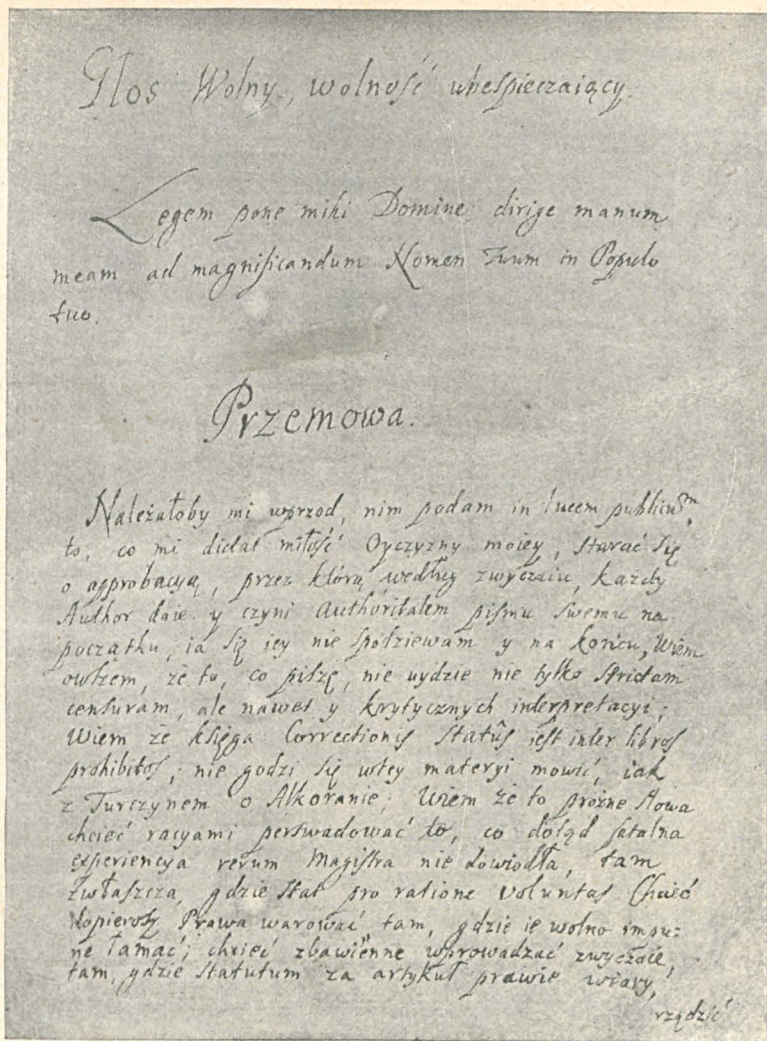 Głos Wolny, wolność ubespieczaiący.
Legem pone mihi Domine, dirige manum
meam ad magnificandum Nomen Tuum in Populo
tuo.
Przemowa.
Należałoby mi wprzod, nim podam in lucem publicam,
to, co mi dictat miłość Oyczyzny moiey, starać się
o approbacyą, przez którą według zwyczaiu, każdy
Author daie y czyni authoritatem pismu swemu na
początku, ia się iey nie spodziewam y na końcu, Wiem
owszem, że to, co piszę, nie uydzie nie tylko strictam
censuram, ale nawet y krytycznych interpretacyi;
Wiem że księga Correctionis Statûs iest inter libros
prohibitos; nie godzi się wtey materyi mowić, iak
z Turczynem o Alkoranie; Wiem że to prożne słowa
chcieć racyami perswadować to, co dotąd fatalna
experiencya rerum Magistra nie dowiodła, tam
zwłaszcza, gdzie stat pro ratione voluntas Chcieć
dopierosz Prawa warować tam, gdzie ie wolno impu=
ne łamać; chcieć zbawienne wprowadzać zwyczaie,
tam, gdzie statutum za artykuł prawie wiary,
rządzić